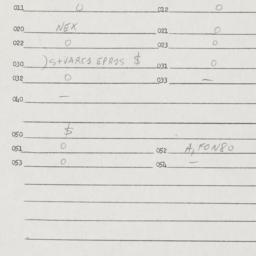 011 0 012 0
020 NEX 021 0
022 0 023 0
030 031 0
032 0 033 —
040 —
050 $
051 0 052 A, FONSO
053 0 054 —